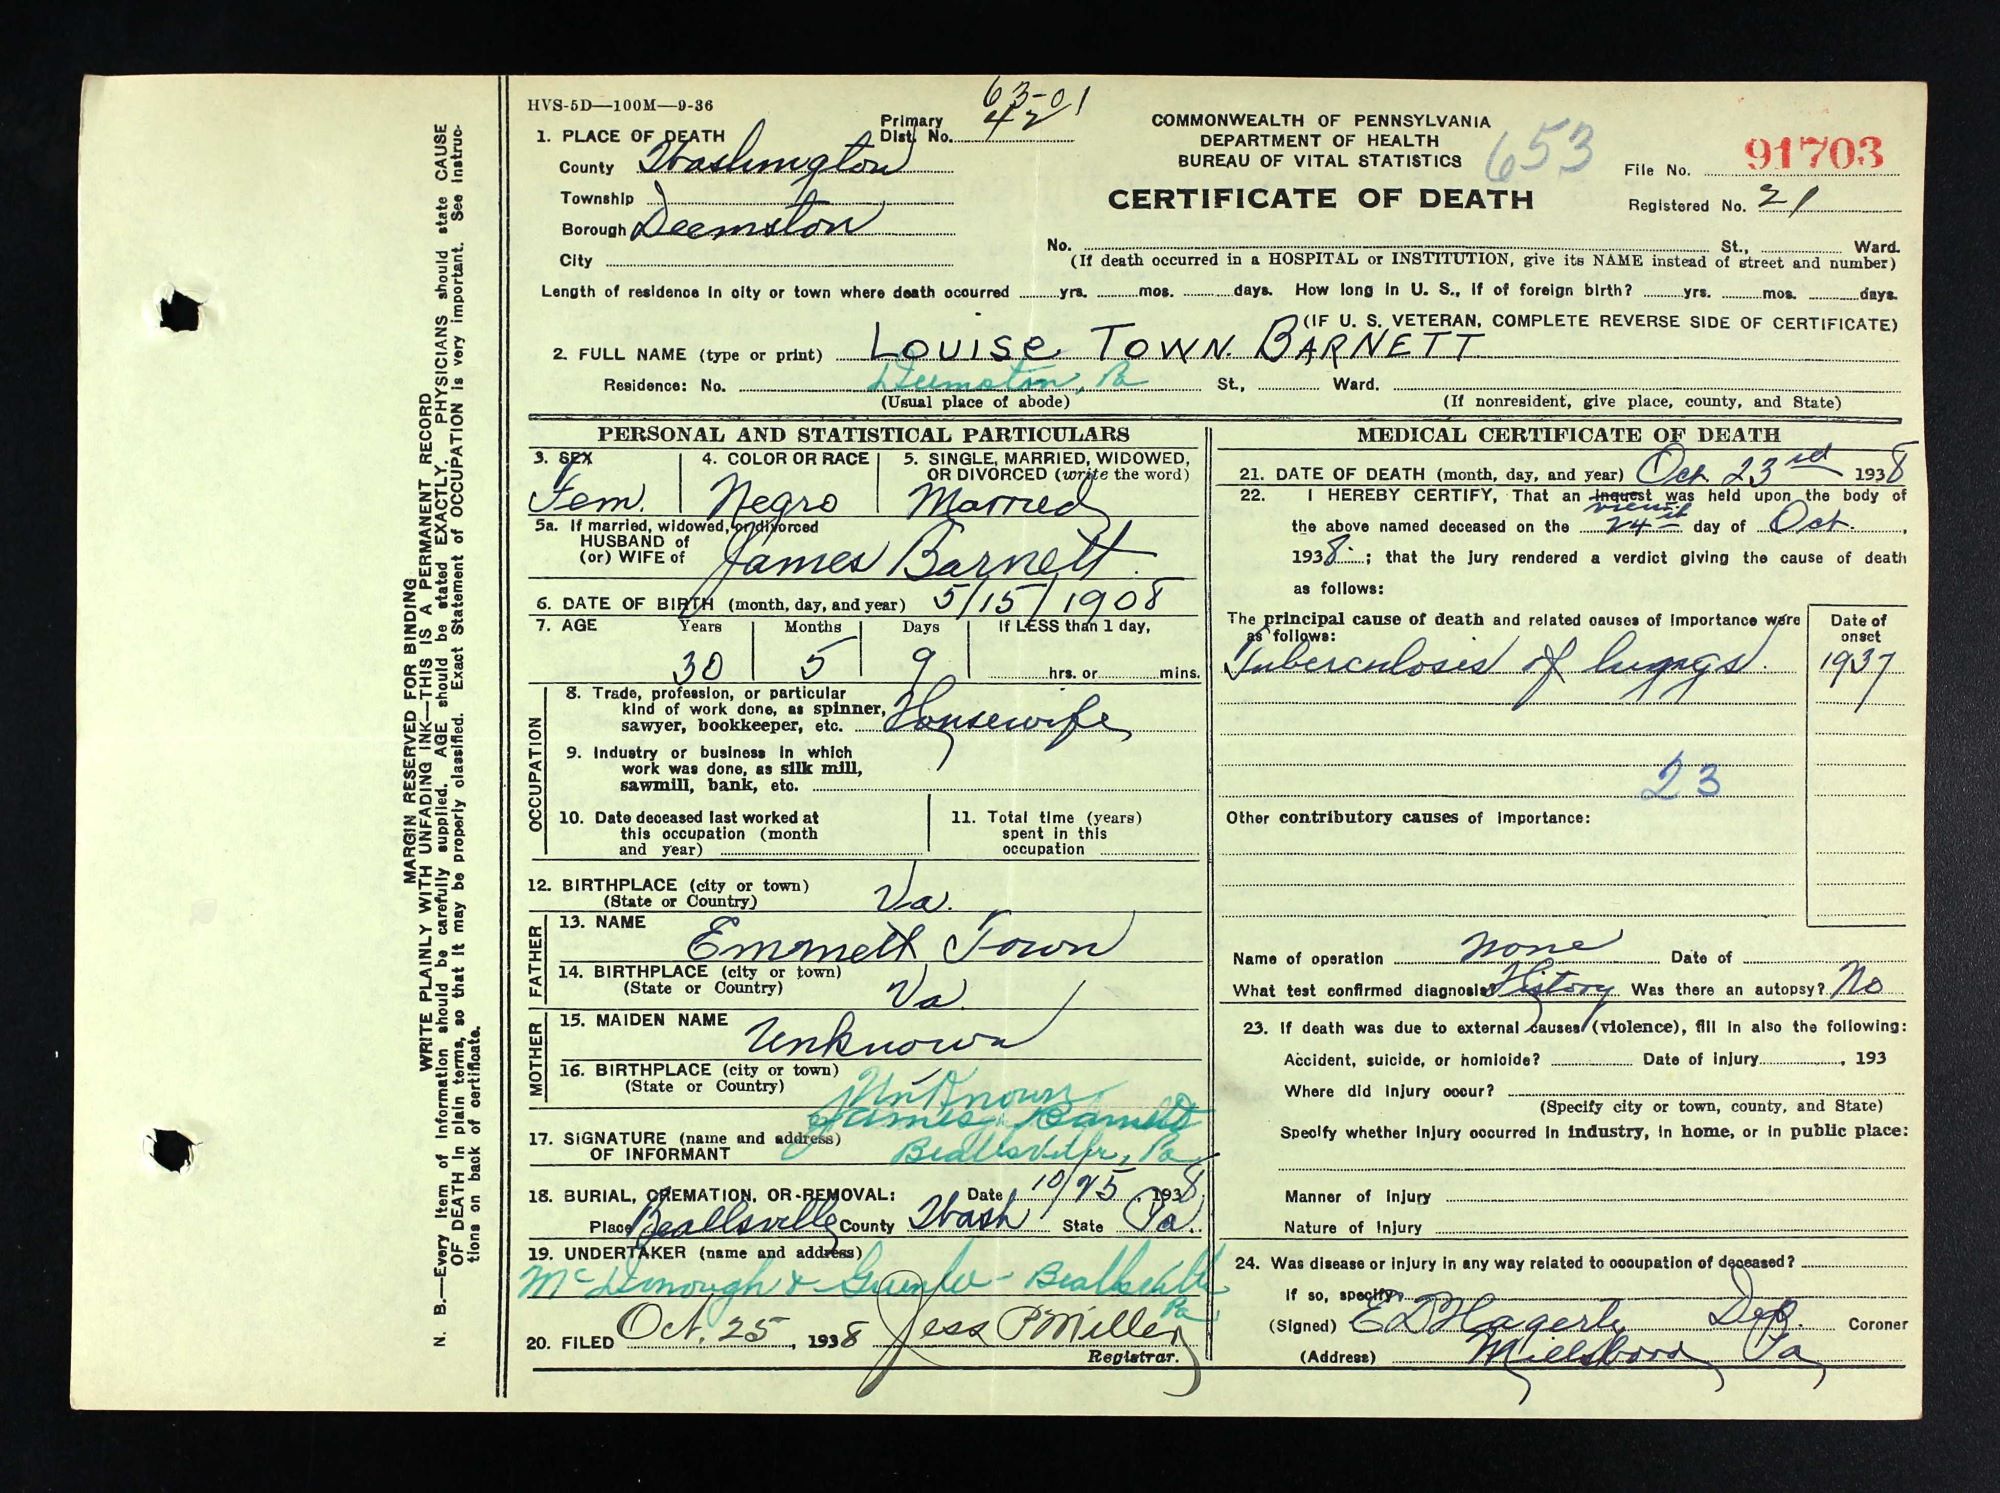 HVS-5D—100M—9-36
1. PLACE OF DEATH
County Washington
Township
Borough Deemston
City
Primary Dist. No. 63-01
42
COMMONWEALTH OF PENNSYLVANIA
DEPARTMENT OF HEALTH
BUREAU OF VITAL STATISTICS
653
CERTIFICATE OF DEATH
File No. 91703
Registered No. 21
No. St., Ward.
(If death occurred in a HOSPITAL or INSTITUTION, give its NAME instead of street and number)
Length of residence in city or town where death occurred yrs. mos. days. How long in U. S., if of foreign birth? yrs. mos. days.
(IF U. S. VETERAN, COMPLETE REVERSE SIDE OF CERTIFICATE)
2. FULL NAME (type or print) LOUISE TOWN. BARNETT
Residence: No. Deemston, Pa St., Ward.
(Usual place of abode) (If nonresident, give place, county, and State)
PERSONAL AND STATISTICAL PARTICULARS
3. SEX Fem.
4. COLOR OR RACE Negro
5. SINGLE, MARRIED, WIDOWED, OR DIVORCED (write the word) Married
5a. If married, widowed, or divorced
HUSBAND of
(or) WIFE of James Barnett.
6. DATE OF BIRTH (month, day, and year) 5/15/1908
7. AGE Years Months Days If LESS than 1 day,
30 5 9 hrs. or mins.
OCCUPATION
8. Trade, profession, or particular
kind of work done, as spinner,
sawyer, bookkeeper, etc. Housewife
9. Industry or business in which
work was done, as silk mill,
sawmill, bank, etc.
10. Date deceased last worked at
this occupation (month
and year)
11. Total time (years)
spent in this
occupation
12. BIRTHPLACE (city or town)
(State or Country) Va.
FATHER
13. NAME Emmett Town
14. BIRTHPLACE (city or town)
(State or Country) Va.
MOTHER
15. MAIDEN NAME Unknown
16. BIRTHPLACE (city or town)
(State or Country) Unknown
17. SIGNATURE (name and address)
OF INFORMANT James Barnett
Beallsville, Pa
18. BURIAL, CREMATION, OR REMOVAL: Date 10/25, 1938
Place Beallsville County Wash State Pa.
19. UNDERTAKER (name and address)
McDonough & - Beallsville
Pa.
20. FILED Oct. 25, 1938 Jess P Miller
Registrar.
MEDICAL CERTIFICATE OF DEATH
21. DATE OF DEATH (month, day, and year) Oct. 23rd 1938
22. I HEREBY CERTIFY, That an inquest was held upon the body of
view
the above named deceased on the 24th day of Oct.,
1938; that the jury rendered a verdict giving the cause of death
as follows:
The principal cause of death and related causes of importance were
as follows:
Date of
onset
Tuberculosis of lungs. 1937
23
Other contributory causes of importance:
Name of operation none Date of
What test confirmed diagnosis History Was there an autopsy? No
23. If death was due to external causes (violence), fill in also the following:
Accident, suicide, or homicide? Date of injury, 193
Where did injury occur?
(Specify city or town, county, and State)
Specify whether injury occurred in industry, in home, or in public place:
Manner of injury
Nature of injury
24. Was disease or injury in any way related to occupation of deceased?
If so, specify
(Signed) Dep. Coroner
(Address) Millsboro, Pa
MARGIN RESERVED FOR BINDING
WRITE PLAINLY WITH UNFADING INK—THIS IS A PERMANENT RECORD
N. B.—Every item of information should be carefully supplied. AGE should be stated EXACTLY. PHYSICIANS should state CAUSE
OF DEATH in plain terms, so that it may be properly classified. Exact Statement of OCCUPATION is very important. See instruc-
tions on back of certificate.